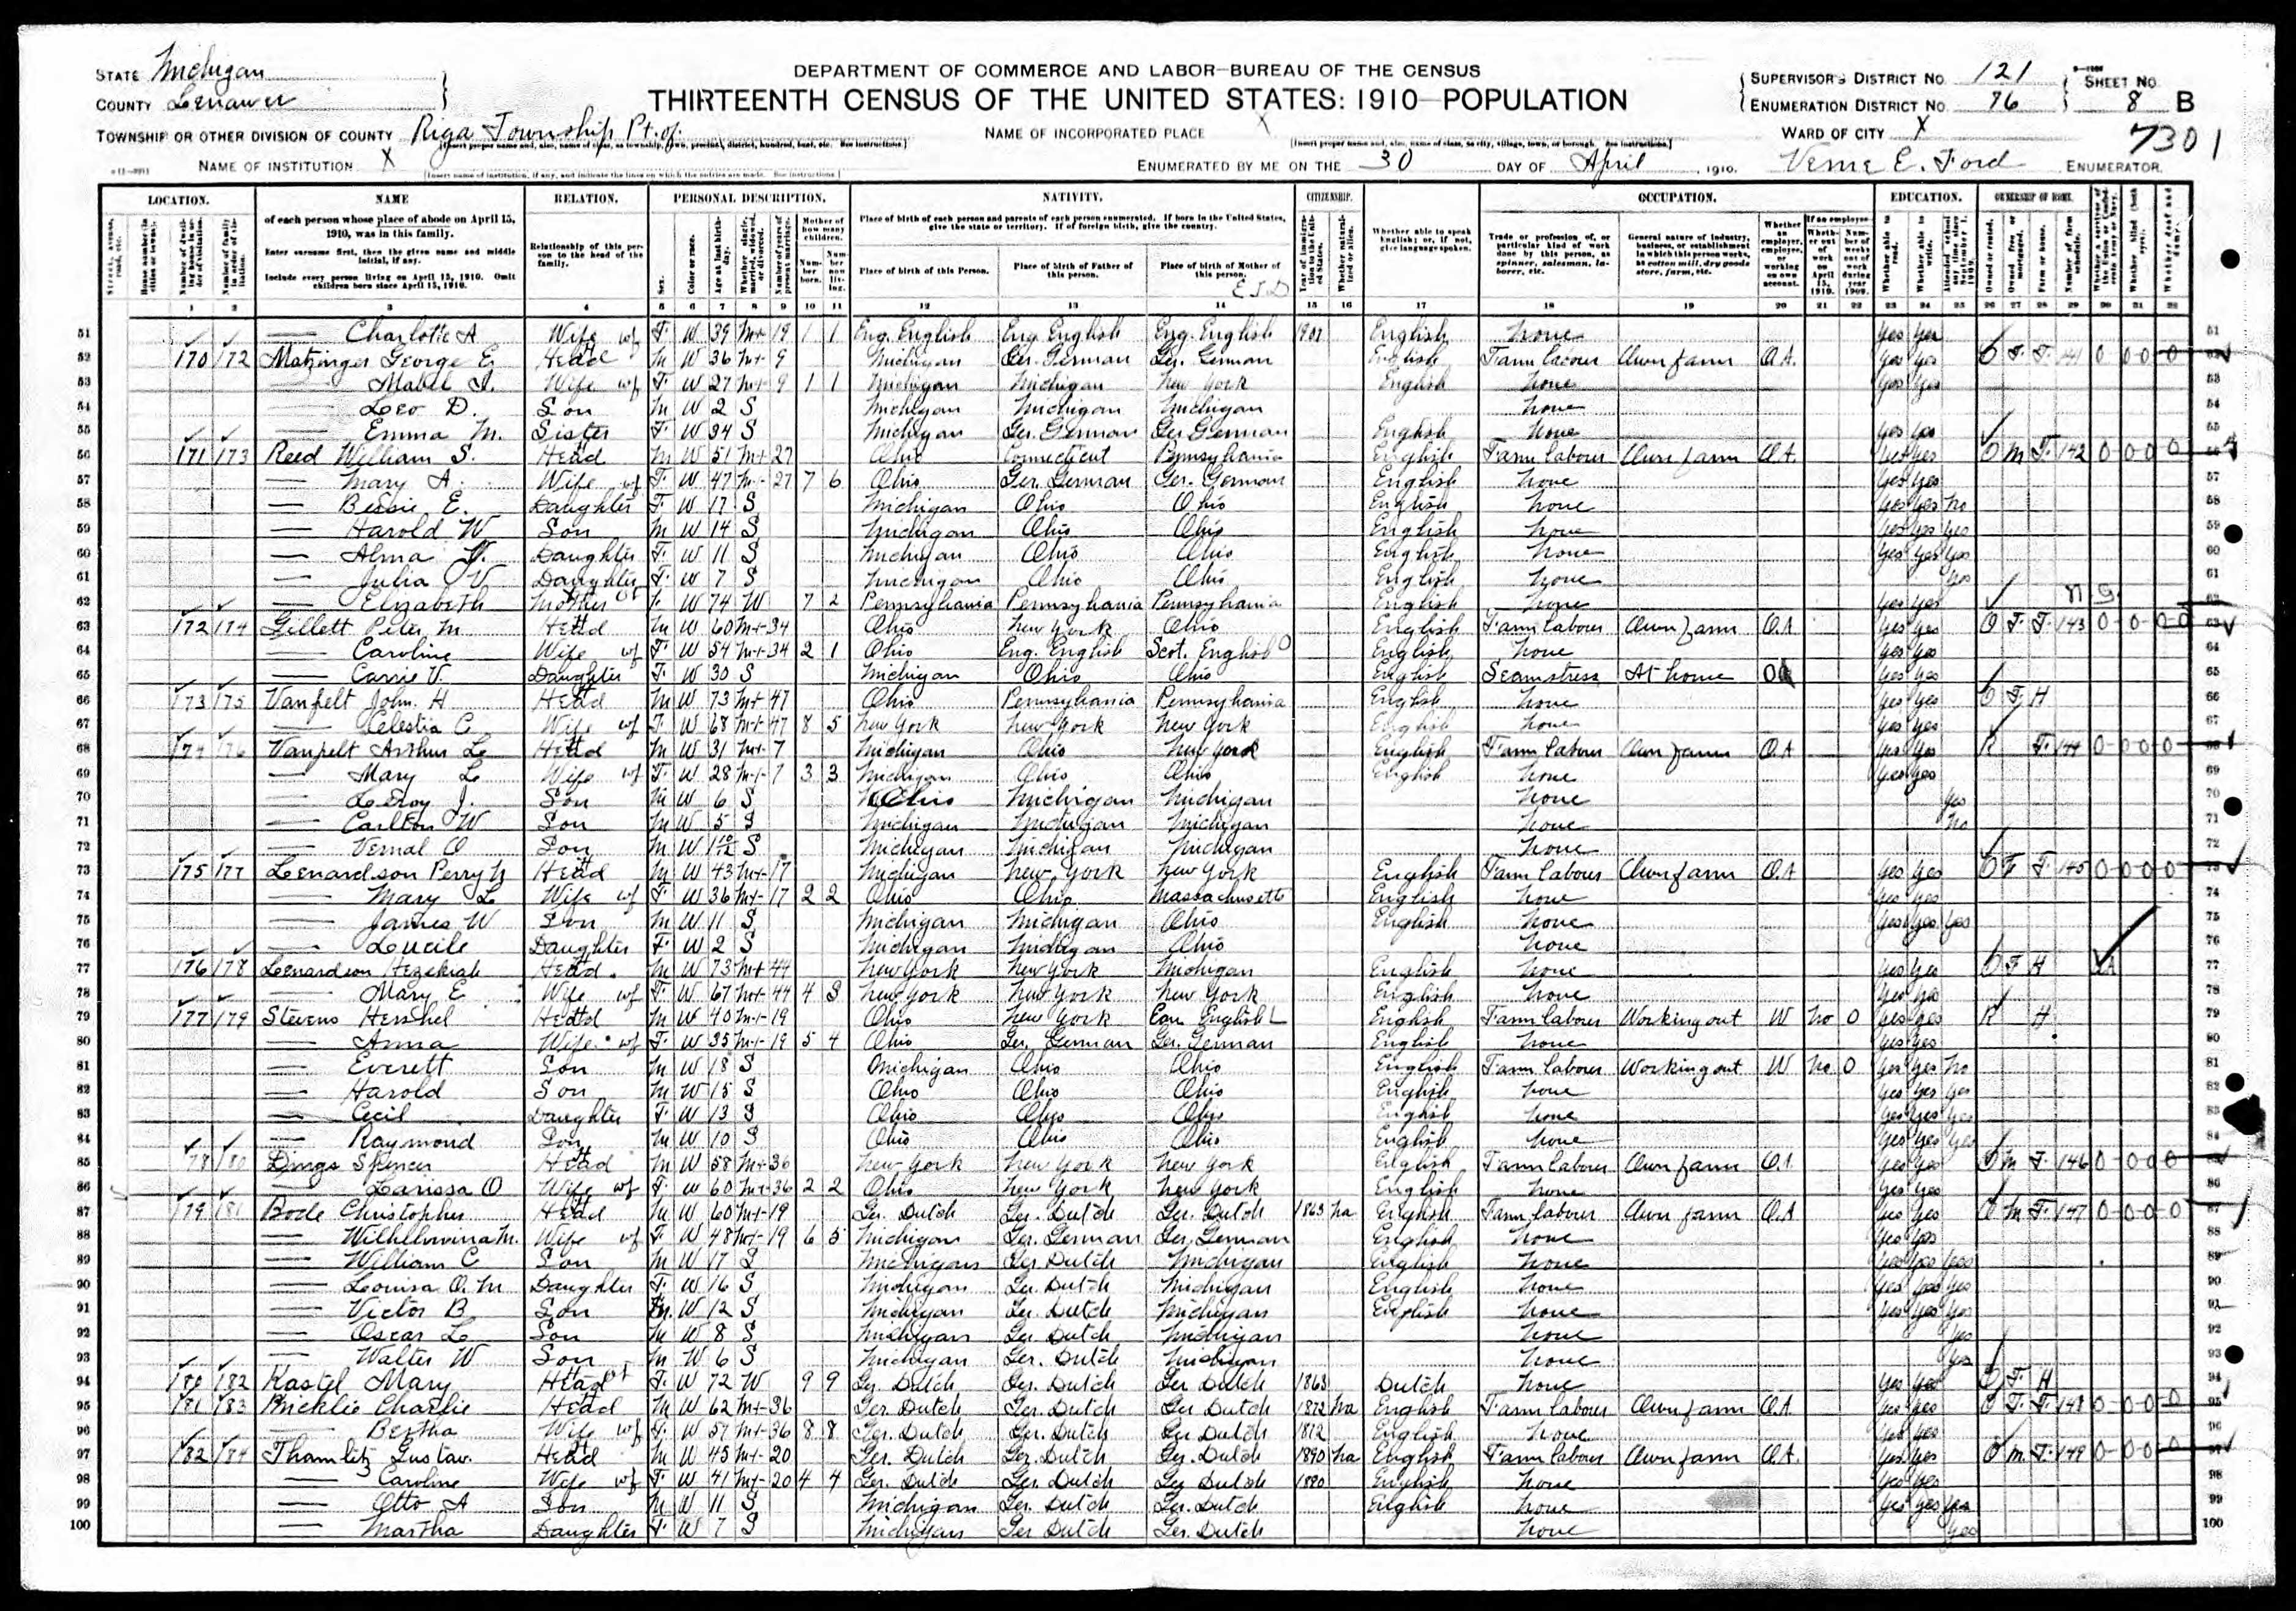 DEPARTMENT OF COMMERCE AND LABOR—BUREAU OF THE CENSUS
THIRTEENTH CENSUS OF THE UNITED STATES: 1910—POPULATION
STATE Michigan
COUNTY Lenawee
TOWNSHIP OR OTHER DIVISION OF COUNTY Riga Township Pt. of.
NAME OF INSTITUTION X
NAME OF INCORPORATED PLACE X
ENUMERATED BY ME ON THE 30 DAY OF April, 1910.
SUPERVISOR'S DISTRICT NO. 121
ENUMERATION DISTRICT NO. 76
SHEET NO. 8 B
WARD OF CITY X
7301
Verne E. Ford ENUMERATOR.
LOCATION. NAME RELATION. PERSONAL DESCRIPTION. NATIVITY. CITIZENSHIP. OCCUPATION. EDUCATION. OWNERSHIP OF HOME.
of each person whose place of abode on April 15, 1910, was in this family.
Enter surname first, then the given name and middle initial, if any.
Include every person living on April 15, 1910. Omit children born since April 15, 1910.
Relationship of this person to the head of the family.
Place of birth of each person and parents of each person enumerated. If born in the United States, give the state or territory. If of foreign birth, give the country.
Place of birth of this Person. Place of birth of Father of this person. Place of birth of Mother of this person.
Whether able to speak English; or, if not, give language spoken.
Trade or profession of, or particular kind of work done by this person, as spinner, salesman, laborer, etc.
General nature of industry, business, or establishment in which this person works, as cotton mill, dry goods store, farm, etc.
51 — Charlotte A Wife F W 39 M1 19 1 1 Eng. English Eng. English Eng. English 1907 English none yes yes
52 170 172 Matzinger George E. Head M W 36 M1 9 Michigan Ger. German Ger. German English Farm labour Own farm O.A. yes yes O F F 141
53 — Mabel Wife F W 27 M1 9 1 1 Michigan Michigan New York English none yes yes
54 — Leo D. Son M W 2 S Michigan Michigan Michigan none
55 — Emma M. Sister F W 34 S Michigan Ger. German Ger German English none yes yes
56 171 173 Reed William S. Head M W 51 M1 27 Ohio Connecticut Pennsylvania English Farm labour Own farm O.A. yes yes O M F 142
57 — Mary A. Wife F W 47 M1 27 7 6 Ohio Ger. German Ger. German English none yes yes
58 — Bessie E. Daughter F W 17 S Michigan Ohio Ohio English none yes yes no
59 — Harold W Son M W 14 S Michigan Ohio Ohio English none yes yes yes
60 — Alma Daughter F W 11 S Michigan Ohio Ohio English none yes yes yes
61 — Julia V Daughter F W 7 S Michigan Ohio Ohio English none yes
62 — Elizabeth Mother F W 74 W 7 2 Pennsylvania Pennsylvania Pennsylvania English none yes yes
63 172 174 Gillett Peter M Head M W 60 M1 34 Ohio New York Ohio English Farm labour Own farm O.A yes yes O F F 143
64 — Caroline Wife F W 54 M1 34 2 1 Ohio Eng. English Scot. English English none yes yes
65 — Carrie V. Daughter F W 30 S Michigan Ohio Ohio English Seamstress At home OA yes yes
66 173 175 Vanpelt John. H Head M W 73 M1 47 Ohio Pennsylvania Pennsylvania English none yes yes O F H
67 — Celestia C Wife F W 68 M1 47 8 5 New York New York New York English none yes yes
68 174 176 Vanpelt Arthur L Head M W 31 M1 7 Michigan Ohio New York English Farm labour Own farm O.A yes yes R F 144
69 — Mary L Wife F W 28 M1 7 3 3 Michigan Ohio Ohio English none yes yes
70 — LeRoy J. Son M W 6 S Ohio Michigan Michigan none yes
71 — Carlton W Son M W 5 S Michigan Michigan Michigan none no
72 — Vernal O Son M W S Michigan Michigan Michigan none
73 175 177 Lenardson Perry Head M W 43 M1 17 Michigan New York New York English Farm labour Own farm O.A yes yes O F F 145
74 — Mary L Wife F W 36 M1 17 2 2 Ohio Ohio Massachusetts English none yes yes
75 — James W Son M W 11 S Michigan Michigan Ohio English none yes yes yes
76 — Lucile Daughter F W 2 S Michigan Michigan Ohio none
77 176 178 Lenardson Hezekiah Head M W 73 M1 44 New York New York Michigan English none yes yes O F H
78 — Mary E Wife F W 67 M1 44 4 3 New York New York New York English none yes yes
79 177 179 Stevens Herschel Head M W 40 M1 19 Ohio New York Can. English English Farm labour Working out W no 0 yes yes R H
80 — Anna Wife F W 35 M1 19 5 4 Ohio Ger. German Ger. German English none yes yes
81 — Everett Son M W 18 S Michigan Ohio Ohio English Farm labour Working out W no 0 yes yes no
82 — Harold Son M W 15 S Ohio Ohio Ohio English none yes yes yes
83 — Cecil Daughter F W 13 S Ohio Ohio Ohio English none yes yes yes
84 — Raymond Son M W 10 S Ohio Ohio Ohio English none yes yes yes
85 178 180 Dings Spencer Head M W 58 M1 36 New York New York New York English Farm labour Own farm O.A. yes yes O M F 146
86 — Larissa O Wife F W 60 M1 36 2 2 Ohio New York New York English none yes yes
87 179 181 Bode Christopher Head M W 60 M1 19 Ger. Dutch Ger. Dutch Ger. Dutch 1863 na English Farm labour Own farm O.A yes yes O M F 147
88 — Wilhelmina M. Wife F W 48 M1 19 6 5 Michigan Ger. German Ger. German English none yes yes
89 — William C Son M W 17 S Michigan Ger Dutch Michigan English none yes yes yes
90 — Louisa O. M Daughter F W 16 S Michigan Ger. Dutch Michigan English none yes yes yes
91 — Victor B Son M. W 12 S Michigan Ger. Dutch Michigan English none yes yes yes
92 — Oscar L Son M W 8 S Michigan Ger. Dutch Michigan none yes
93 — Walter W Son M W 6 S Michigan Ger. Dutch Michigan none yes
94 180 182 Kastel Mary Head F W 72 W 9 9 Ger. Dutch Ger. Dutch Ger Dutch 1863 Dutch none yes yes O F H
95 181 183 Bricklie Charlie Head M W 62 M1 36 Ger. Dutch Ger. Dutch Ger Dutch 1872 na English Farm labour Own farm O.A. yes yes O F F 148
96 — Bertha Wife F W 57 M1 36 8 8 Ger. Dutch Ger. Dutch Ger Dutch 1872 English none yes yes
97 182 184 Thamlitz Gustav Head M W 45 M1 20 Ger. Dutch Ger. Dutch Ger. Dutch 1890 na English Farm labour Own farm O.A. yes yes O M F 149
98 — Caroline Wife F W 41 M1 20 4 4 Ger. Dutch Ger. Dutch Ger Dutch 1890 English none yes yes
99 — Otto A Son M W 11 S Michigan Ger. Dutch Ger. Dutch English none yes yes yes
100 — Martha Daughter F W 7 S Michigan Ger Dutch Ger. Dutch none yes